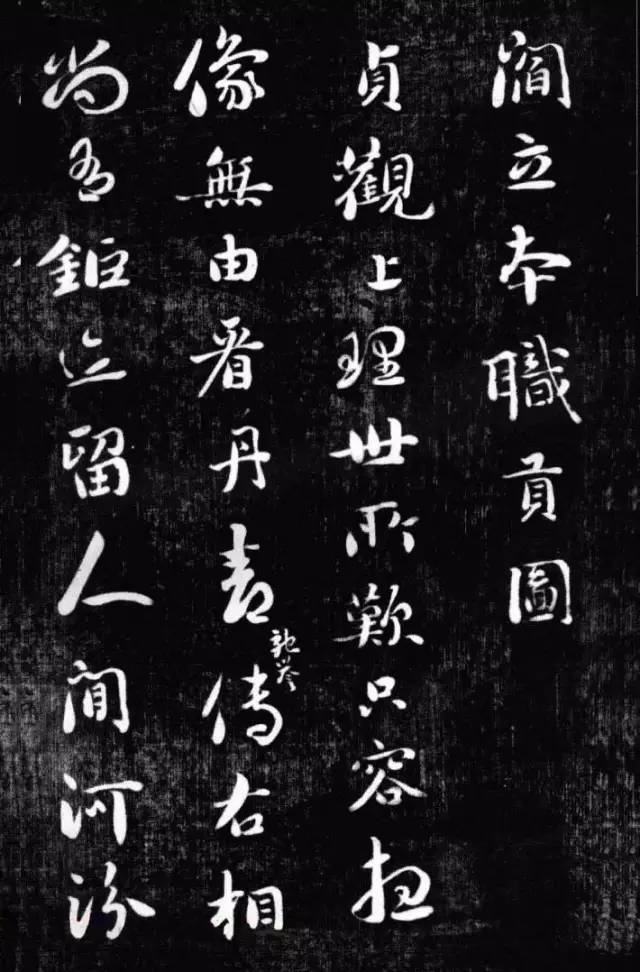 閻立本職貢圖
貞觀上理世所歎只容想
像無由看丹青傳右相
馳譽
尚有鉅迹留人間河汾